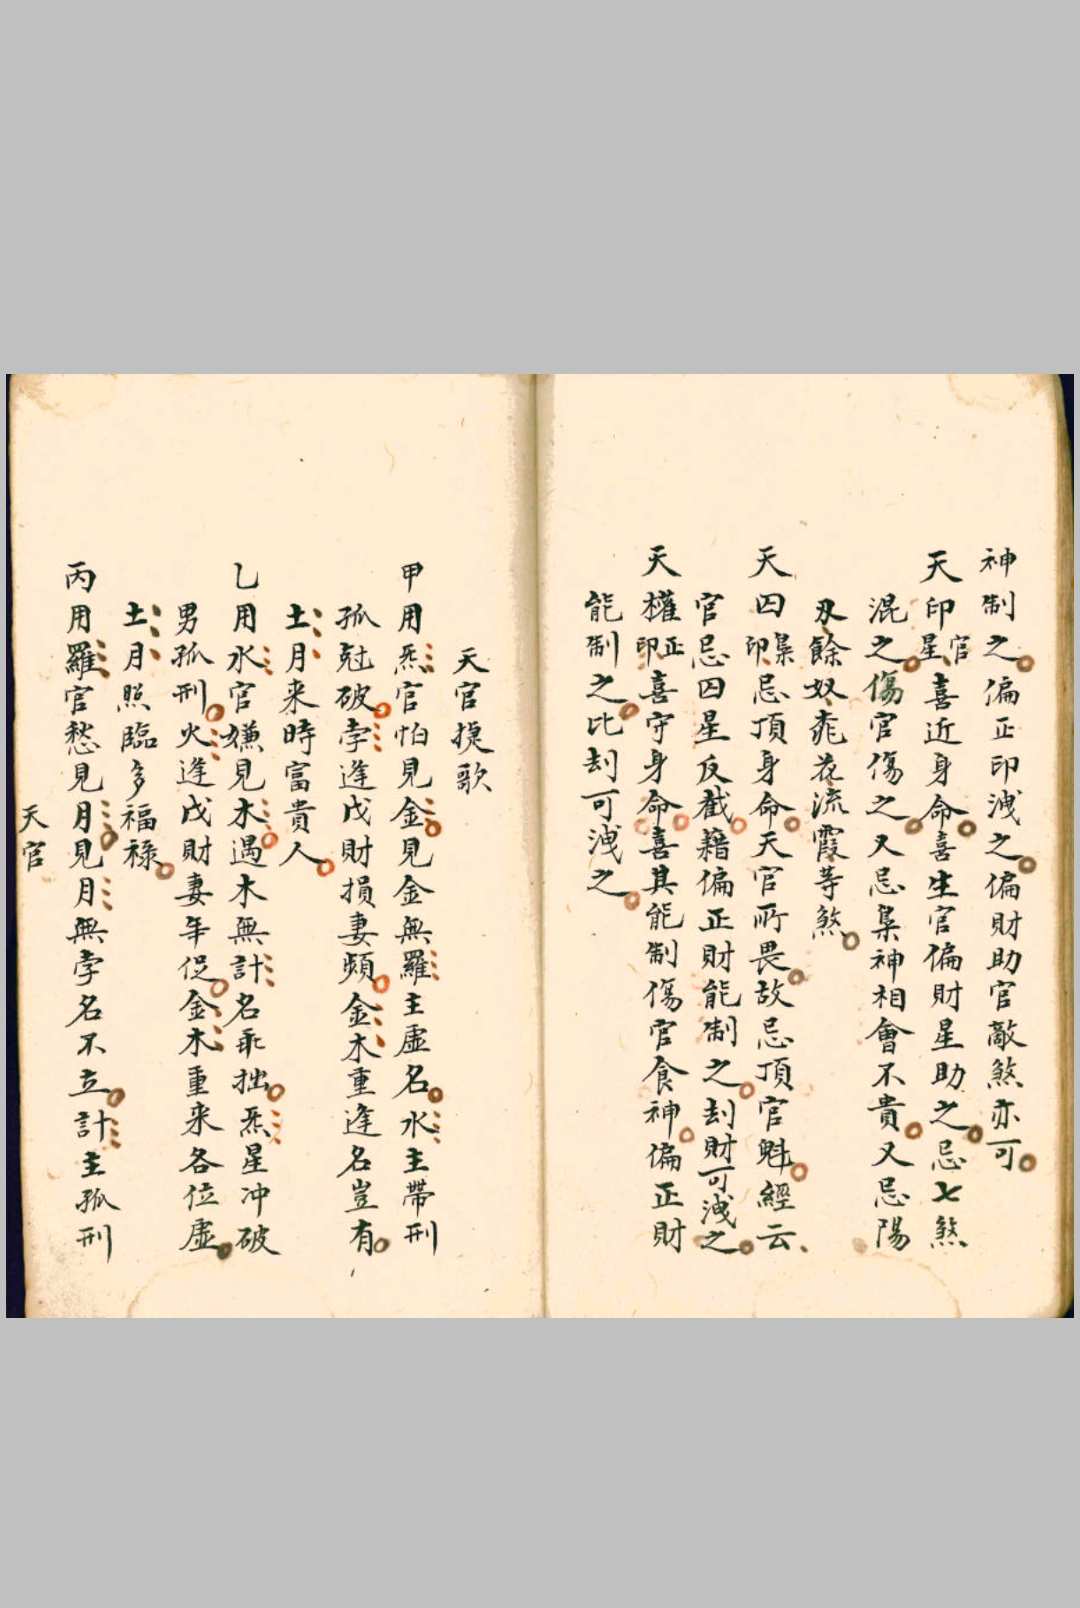 神制之偏正印洩之偏財助官敵煞亦可
天印官星喜近身命喜生官偏財星助之忌七煞
混之傷官傷之又忌梟神相會不貴又忌陽
刃餘奴桃花流霞等煞
天囚梟印忌頂身命天官所畏故忌頂官魁經云
官忌囚星反截籍偏正財能制之刦財可洩之
天權正印喜守身命喜其能制傷官食神偏正財
能制之比刦可洩之
天官捷歌
甲用炁官怕見金見金無羅主虛名水主帶刑
孤尅破孛逢戊財損妻頻金木重逢名豈有
土月来時富貴人
乚用水官嫌見木遇木無計名乖拙炁星冲破
男孤刑火逢戊財妻年促金木重来各位虛
土月照臨多福祿
丙用羅官愁見月見月無孛名不立計主孤刑
天官